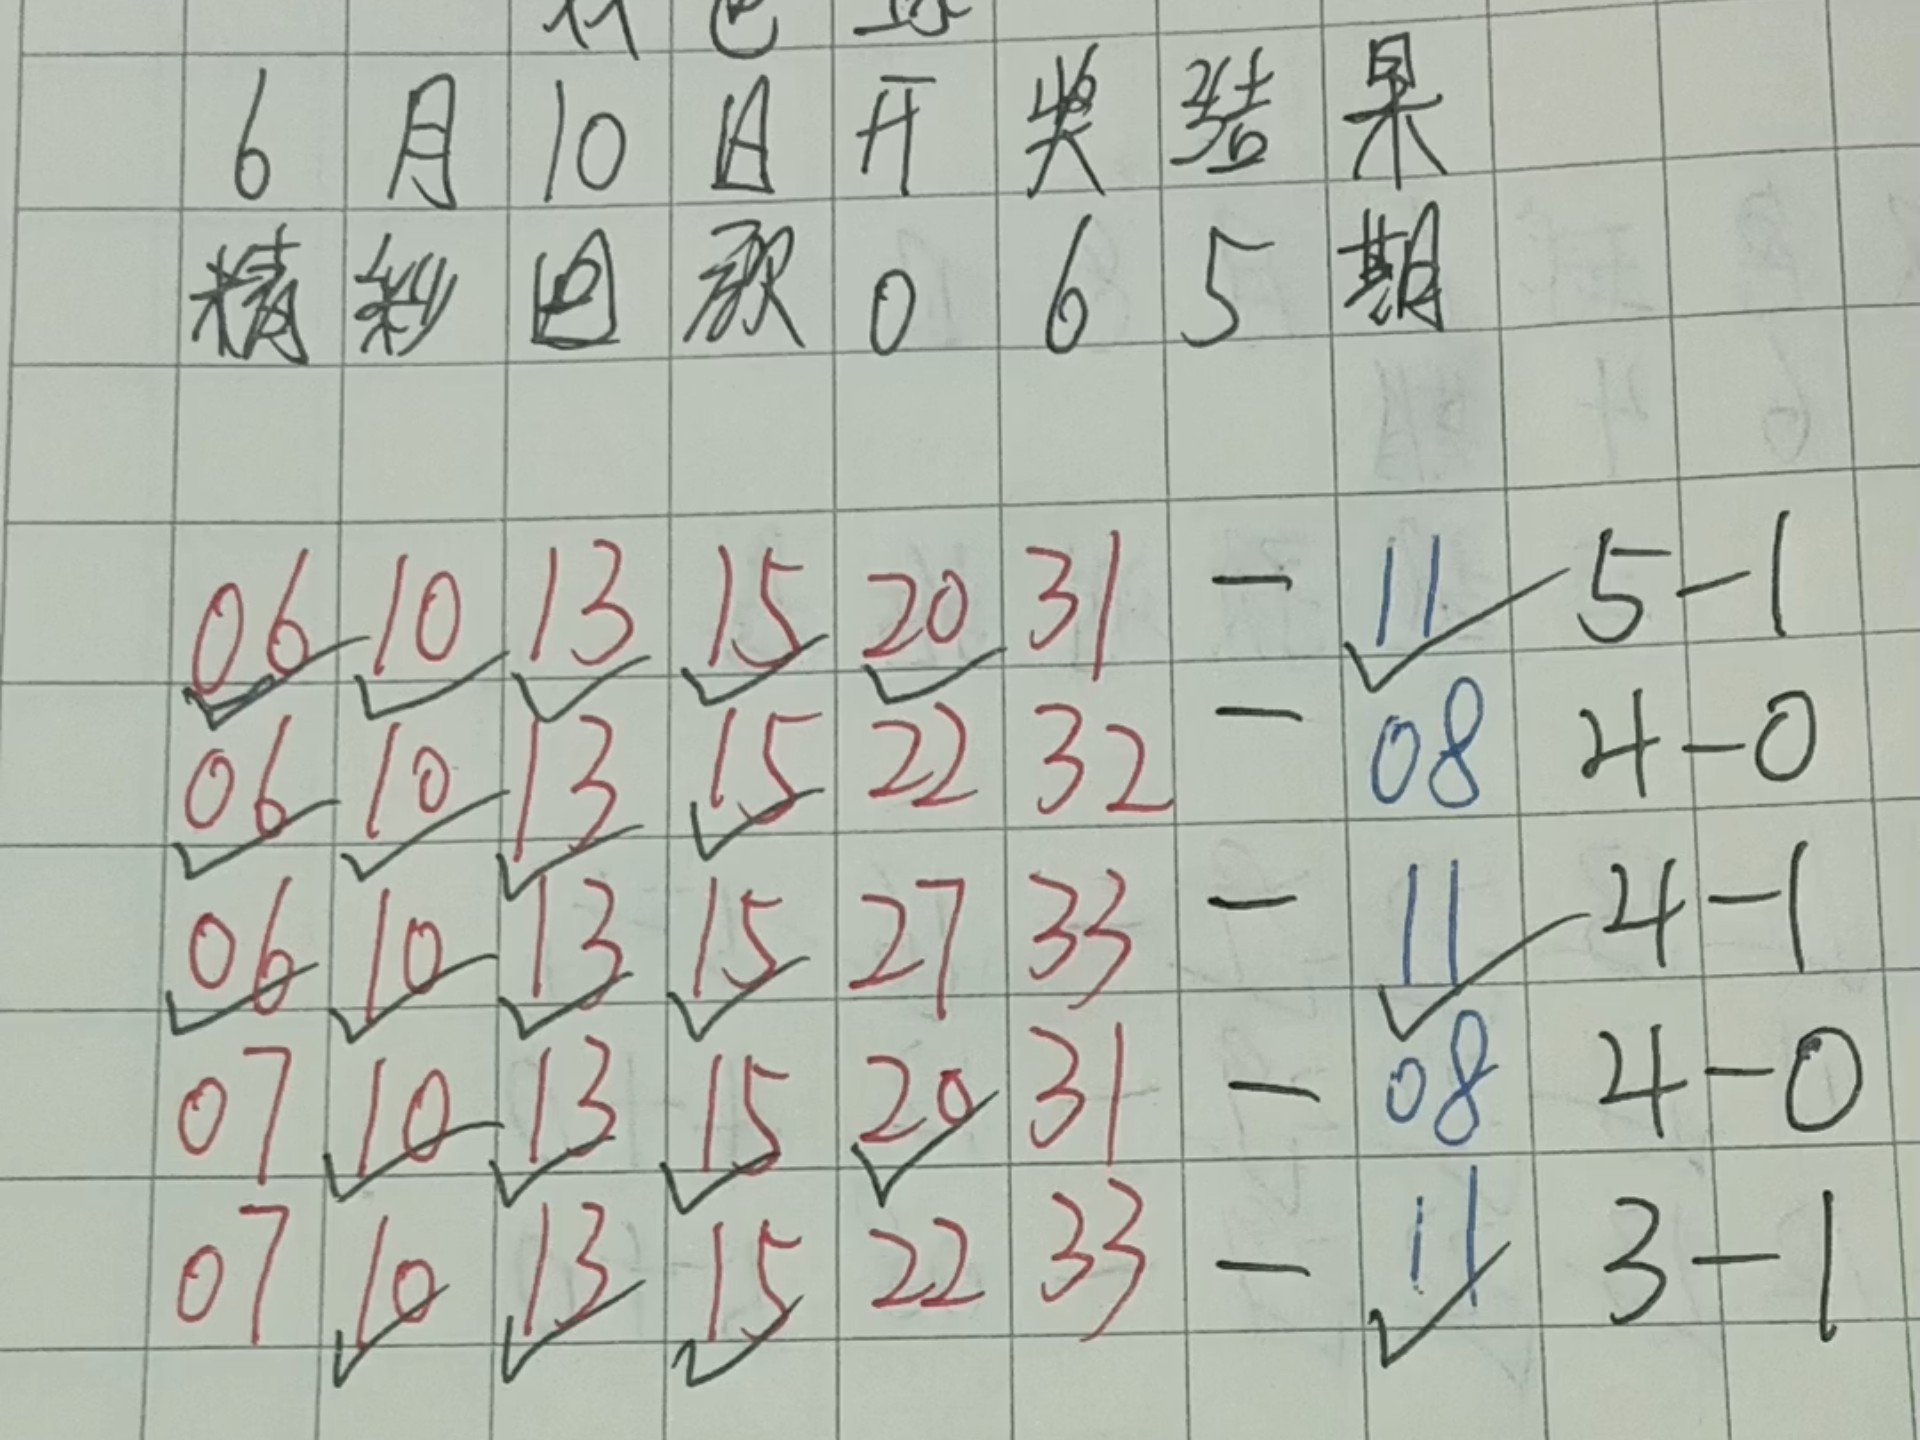 双色球
6月10日开奖结果
精彩回顾065期
06 10 13 15 20 31 - 11 5-1
06 10 13 15 22 32 - 08 4-0
06 10 13 15 27 33 - 11 4-1
07 10 13 15 20 31 - 08 4-0
07 10 13 15 22 33 - 11 3-1